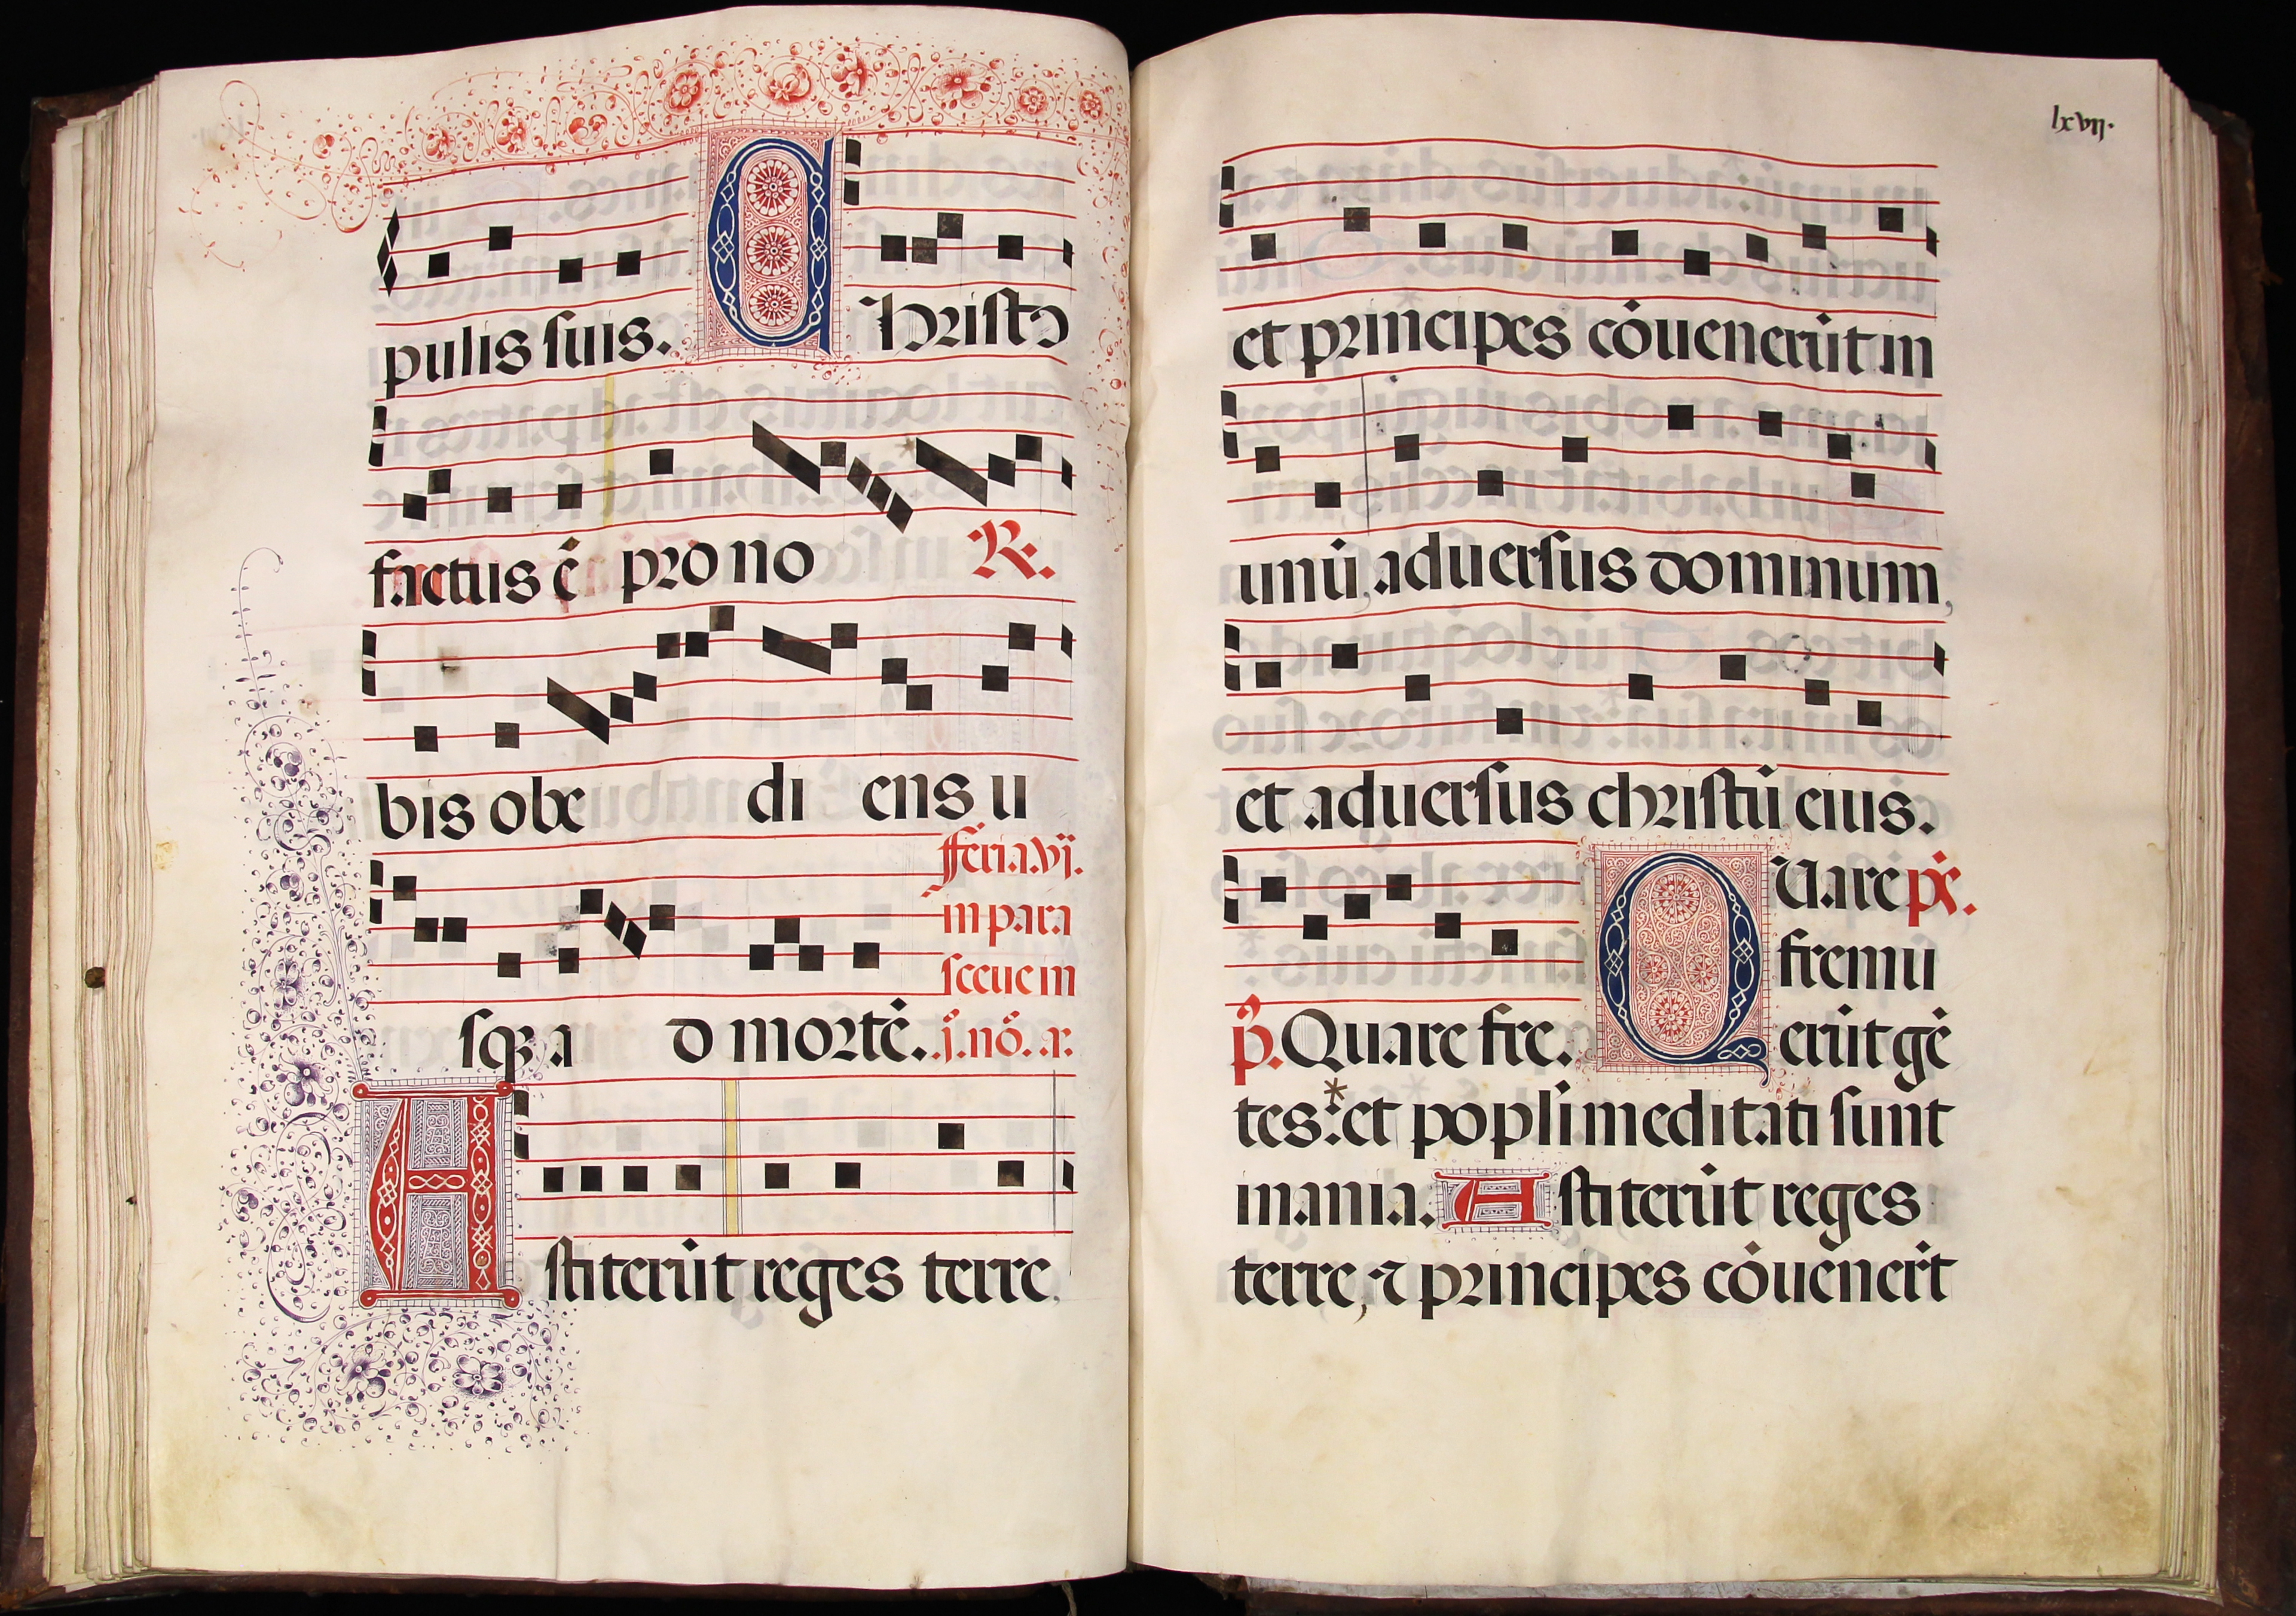 pulis suis. Christo
factus ē pro no R.
bis obe di ens u
sqȝ a d mortē.
feria.vj.
in para
sceue in
j. nō. a.
Astiterūt reges terre,
lxvij.
et principes cōuenerūt in
unū, aduersus dominum,
et aduersus christū eius.
p̄. Quare fre.
QUare ps̄.
fremu
erūt gē
tes:* et popli meditati sunt
inania. Astiterūt reges
terre, ⁊ principes cōuenert̄